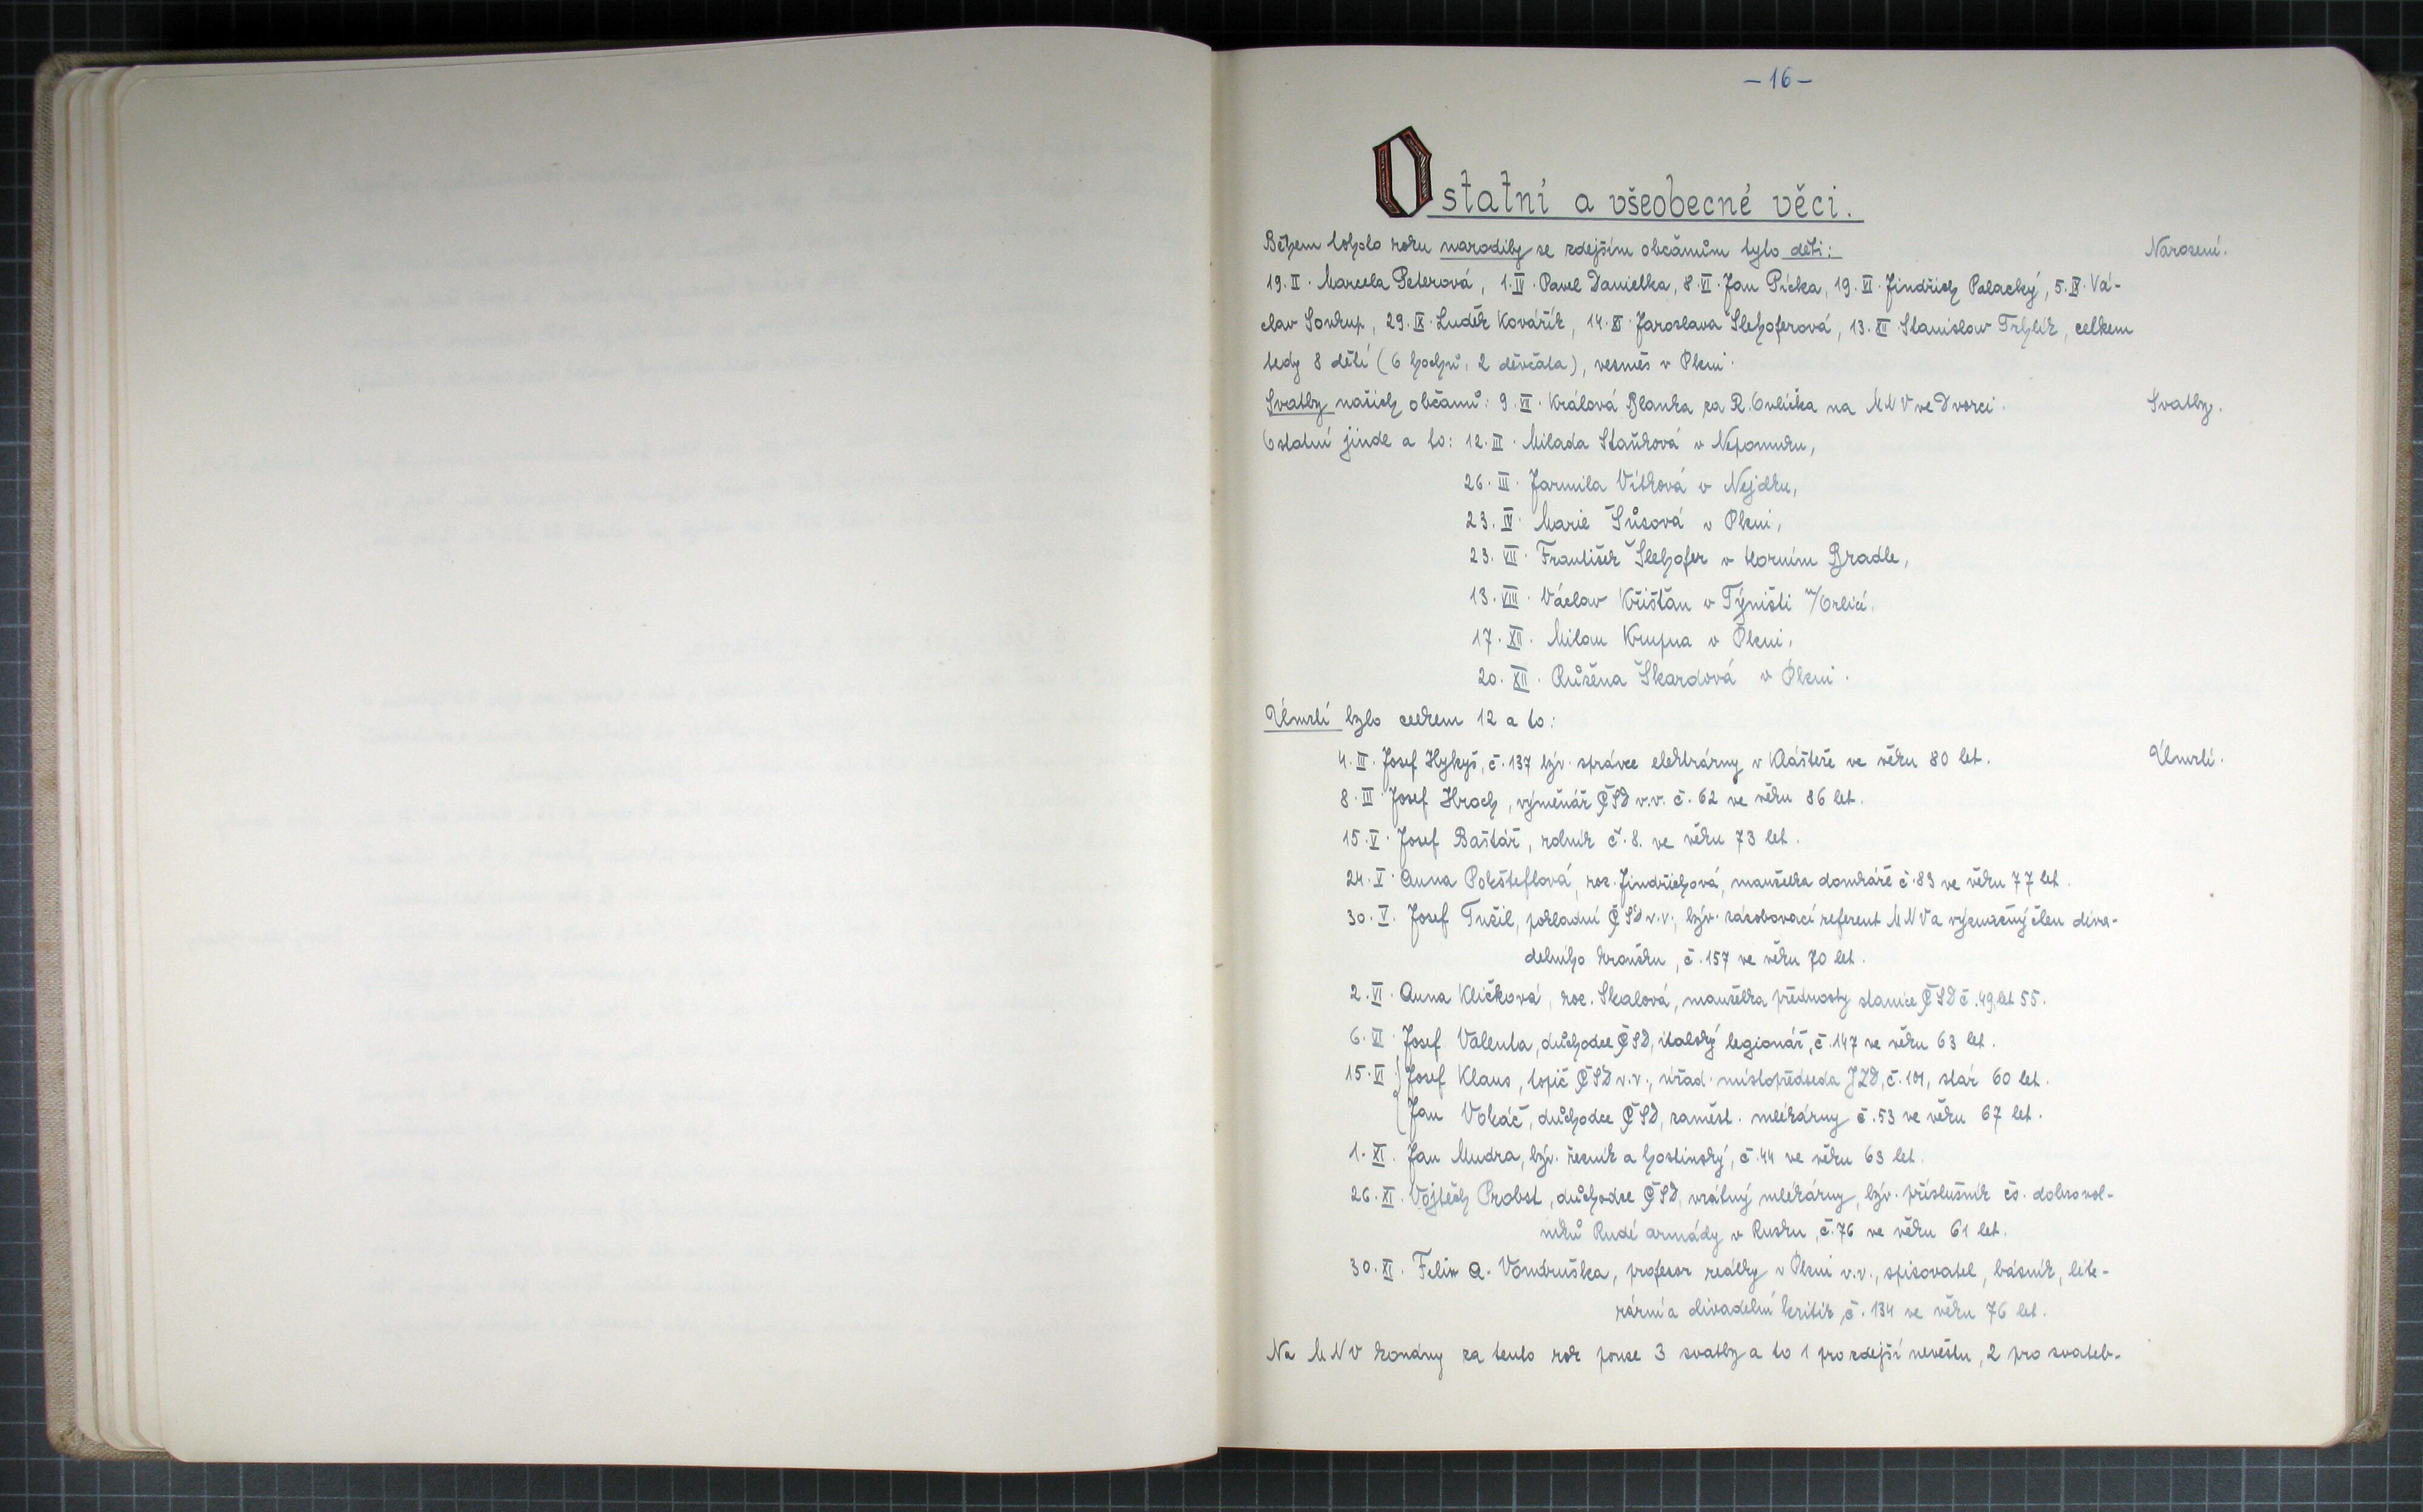 – 16 –
Ostatní a všeobecné věci.
Během tohoto roku narodily se zdejším občanům tyto děti: Narození.
19. II. Marcela Peterová, 1. IV. Pavel Danielka, 8. VI. Jan Pícka, 19. VI. Jindřich Palacký, 5. IX. Vá-
clav Soukup, 29. IX. Luděk Kovářík, 14. XI. Jaroslava Šlehoferová, 13. XII. Stanislav Trhlík, celkem
tedy 8 dětí (6 hochů, 2 děvčata), vesměs v Plzni.
Svatby našich občanů: 9. VII. Králová Blanka za R. Ovlíčka na MNV ve Dvorci. Svatby.
Ostatní jinde a to: 12. II. Milada Staňková v Nepomuku,
26. III. Jarmila Vítková v Nejdku,
23. IV. Marie Šůsová v Plzni,
23. VII. František Šlehofer v Horním Bradle,
13. VIII. Václav Křišťan v Týništi n/Orlicí.
17. XII. Milan Krupna v Plzni,
20. XII. Růžena Škardová v Plzni.
Úmrtí bylo celkem 12 a to:
4. III. Josef Hykyš, č. 137 býv. správce elektrárny v Klášteře ve věku 80 let. Úmrtí.
8. III. Josef Hroch, výměnář ČSD v.v. č. 62 ve věku 86 let.
15. V. Josef Baštář, rolník č. 8. ve věku 73 let.
24. V. Anna Pokšteflová, roz. Jindřichová, manželka domkáře č. 83 ve věku 77 let.
30. V. Josef Tužil, pokladní ČSD v.v., býv. zásobovací referent MNV a význačný člen diva-
delního kroužku, č. 157 ve věku 70 let.
2. VI. Anna Klíčková, roz. Skalová, manželka přednosty stanice ČSD č. 49, let 55.
6. VI. Josef Valenta, důchodce ČSD, italský legionář, č. 147 ve věku 63 let.
15. VI. Josef Klaus, topič ČSD v.v., úřad. místopředseda JZD, č. 101, stár 60 let.
Jan Vokáč, důchodce ČSD, zaměst. mlékárny č. 53 ve věku 67 let.
1. XI. Jan Mudra, býv. řezník a hostinský, č. 44 ve věku 63 let.
26. XI. Vojtěch Probst, důchodce ČSD, vrátný mlékárny, býv. příslušník čs. dobrovol-
níků Rudé armády v Rusku, č. 76 ve věku 61 let.
30. XI. Felix A. Vondruška, profesor reálky v Plzni v.v., spisovatel, básník, lite-
rární a divadelní kritik, č. 134 ve věku 76 let.
Na MNV konány za tento rok pouze 3 svatby a to 1 pro zdejší nevěstu, 2 pro svateb-